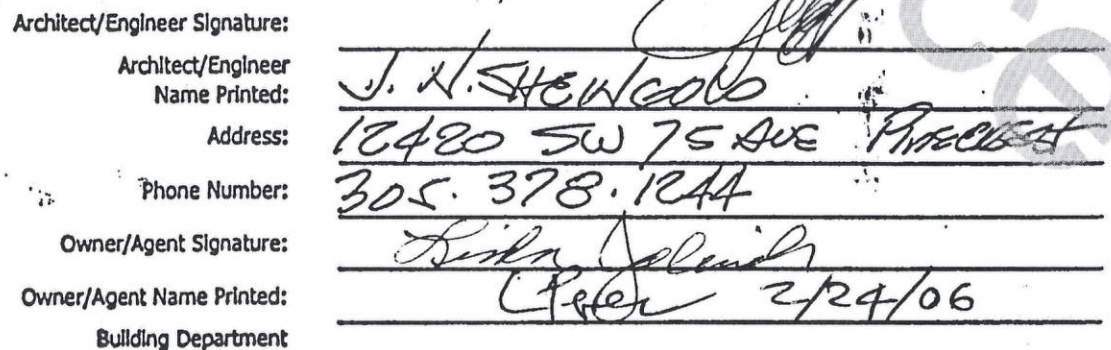 Architect/Engineer Signature:
Architect/Engineer
Name Printed: J. N. SHEWGOLD
Address: 12420 SW 75 AVE PINECREST
Phone Number: 305. 378. 1244
Owner/Agent Signature:
Owner/Agent Name Printed: 2/24/06
Building Department